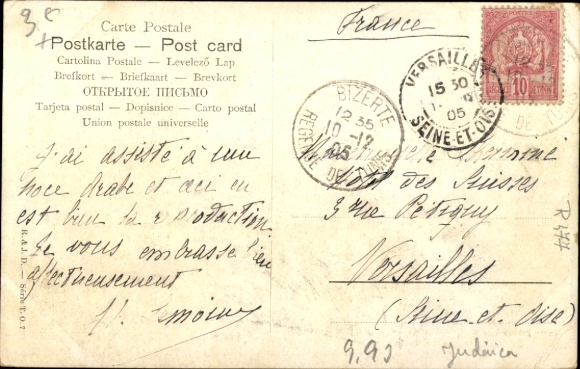 Carte Postale
Postkarte — Post card
Cartolina Postale — Levelező Lap
Brefkort — Briefkaart — Brevkort
ОТКРЫТОЕ ПИСЬМО
Tarjeta postal — Dopisnice — Carto postal
Union postale universelle
France
J'ai assisté à une
noce arabe et ceci en
est bien la reproduction
Je vous embrasse bien
affectueusement
R. & J. D. — Série T. O. 7
BIZERTE
12 35
10-12
05
REGENCE DE TUNIS
VERSAILLES
15 30
05
SEINE-ET-OISE
10
Hôtel des Suisses
3 rue Pétigny
Versailles
(Seine-et-Oise)
R 477
9,90
Judaica